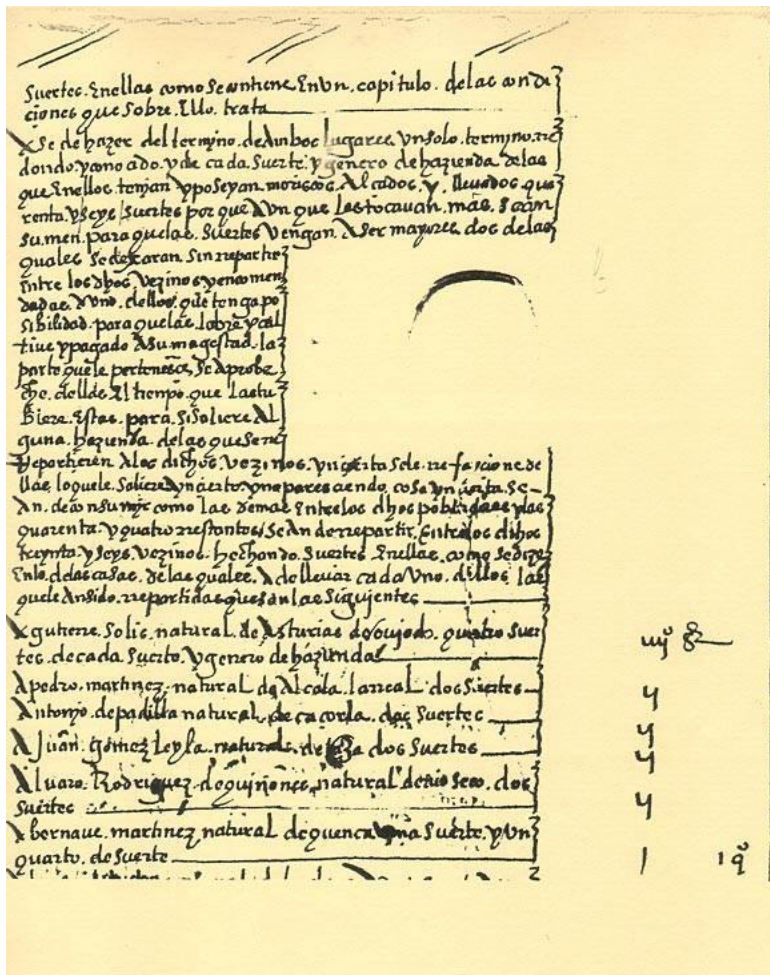 suertes. Enellas como se contiene Enun. capitulo. delas condi
ciones que sobre. Ello. trata
Se de hazer del termyno. de Ambos lugares. Un solo. termyno. rre
dondo. y conocado. y de cada. suerte. y genero de hazienda delas
que Enellos. tenjan y poseyan. moriscos. Alcados. y. llevados. qua
renta. y seys suertes por que Aun que les tocavan. mas. se con
sumen. para quelas. suertes vengan. A ser mayores. dos delas
quales se dexaran. sin rrepartir
Entre los dhos. vezinos y encomen
dadas. A uno. dellos. que tenga po
sibilidad. para quelas. labre y cul
tive y pagado A su magestad. la
parte quele pertenesce se Aprobe
che. dellas El tiempo. que las tu
Biere. Estas. para. si saliere Al
guna. hazienda. delas que se rre
Repartieren A los dichos. vezinos. yncierta se le. rrefacione de
llas. lo quele. saliere. yncierto. y no paresciendo. cosa yncierta. se
An. de consumyr como las demas Entre los dhos pobladores y las
quarenta. y quatro rrestantes. Se An de rrepartir. Entre los dichos
treynta. y seys. vezinos. hechando. suertes. Enellas. como se dize
Enlo. delas casas. de las quales. A de llevar cada uno. dellos las
quele An sido. rrepartidas que son las siguientes
gutierre. solis. natural. de Asturias de oviedo. quatro suer
tes. de cada. suerte. y genero de hazienda
A pedro. martinez. natural de Alcala. la rreal dos suertes
Antonjo. de padilla natural. de cacorla. dos suertes
A Juan. gomez leyla. natural. de dos suertes
Alvaro. Rodriguez. de quiñones. natural de rrio seco. dos
suertes
A bernave. martinez natural de quenca una suerte. y un
quarto. de suerte